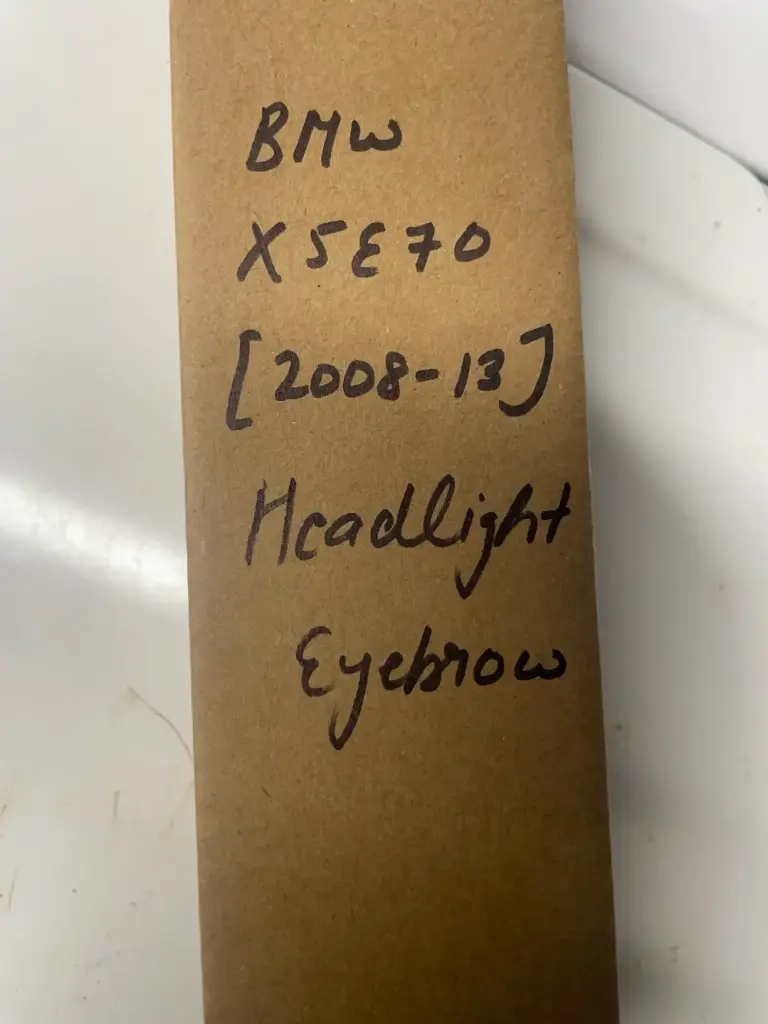 BMW
X5E70
[2008-13]
Headlight
Eyebrow